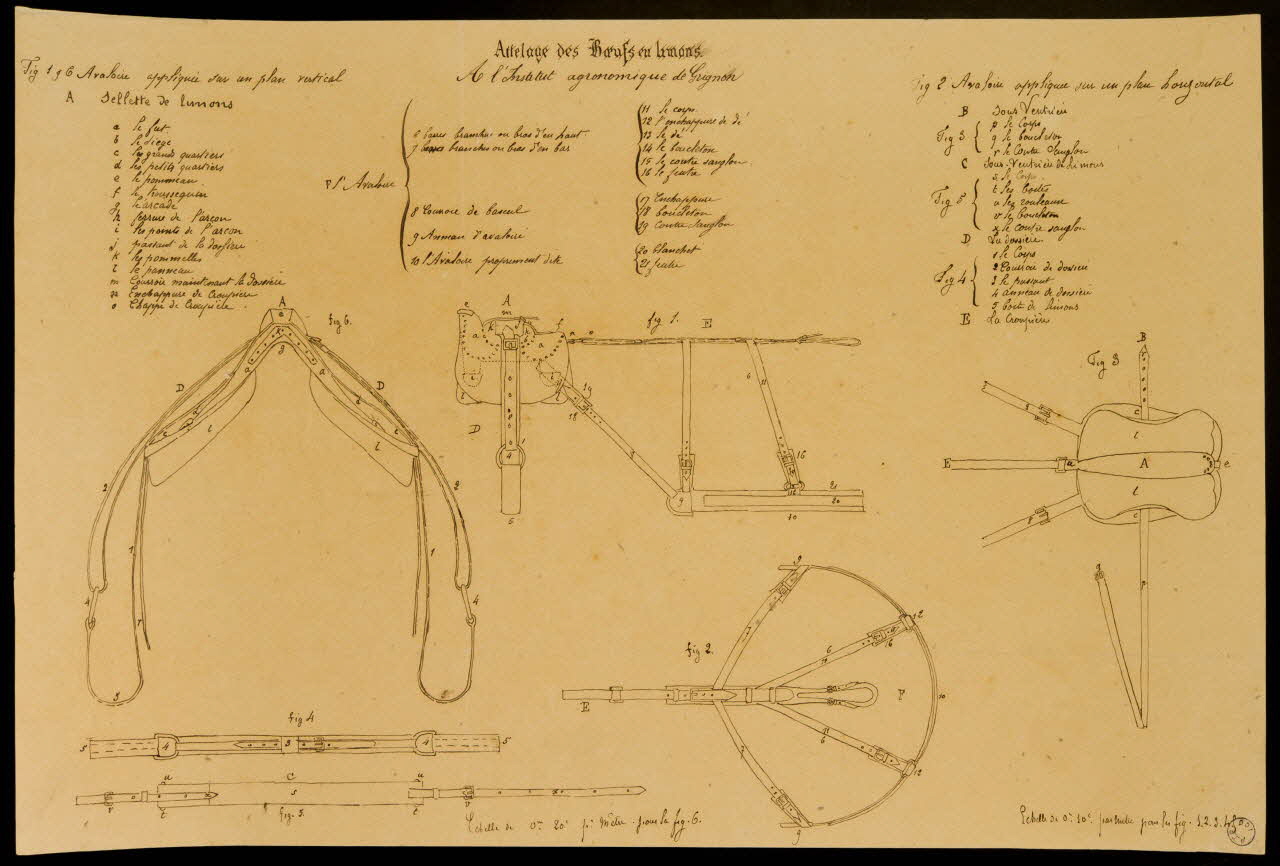 Attelage des Bœufs en limons.
A l'Institut agronomique de Grignon
Fig 1 & 6 Avaloire appliquée sur un plan vertical
A Sellette de limons
a le fut
b le siège
c les grands quartiers
d les petits quartiers
e le pommeau
f le troussequin
g l'arcade
h ferrure de l'arçon
i les points de l'arçon
j passant de la dossière
k les pommelles
l le panneau
m Courroie maintenant la dossière
n Enchappure de Croupière
o Chappe de Croupière
F l'Avaloire
6 branches ou bras d'en haut
7 branches ou bras d'en bas
8 Courroie de bascul
9 Anneau d'avaloire
10 l'Avaloire proprement dite
11 le corps
12 l'enchappure de dé
13 le dé
14 le boucleton
15 le contre sanglon
16 le feutre
17 Enchappure
18 boucleton
19 contre sanglon
20 blanchet
21 feutre
Fig 2 Avaloire appliquée sur un plan horizontal
B Sous Ventrière
Fig 3
p le Corps
q le boucleton
r le Contre Sanglon
C Sous-Ventrière de limons
Fig 5
s le Corps
t les boites
u les rouleaux
v les boucleton
x le contre sanglon
D La dossière
Fig 4
1 le Corps
2 Courroie de dossière
3 le passant
4 anneau de dossière
5 boite de limons
E La Croupière
fig 6.
A
D D
fig 1.
A
E
D
Fig 3
B
E
A
fig 2.
E
F
fig 4
C
fig. 5.
Echelle de 0m 20c pr Mètre pour la fig. 6.
Echelle de 0m 10c par metre pour les fig. 1. 2. 3. 4. 5